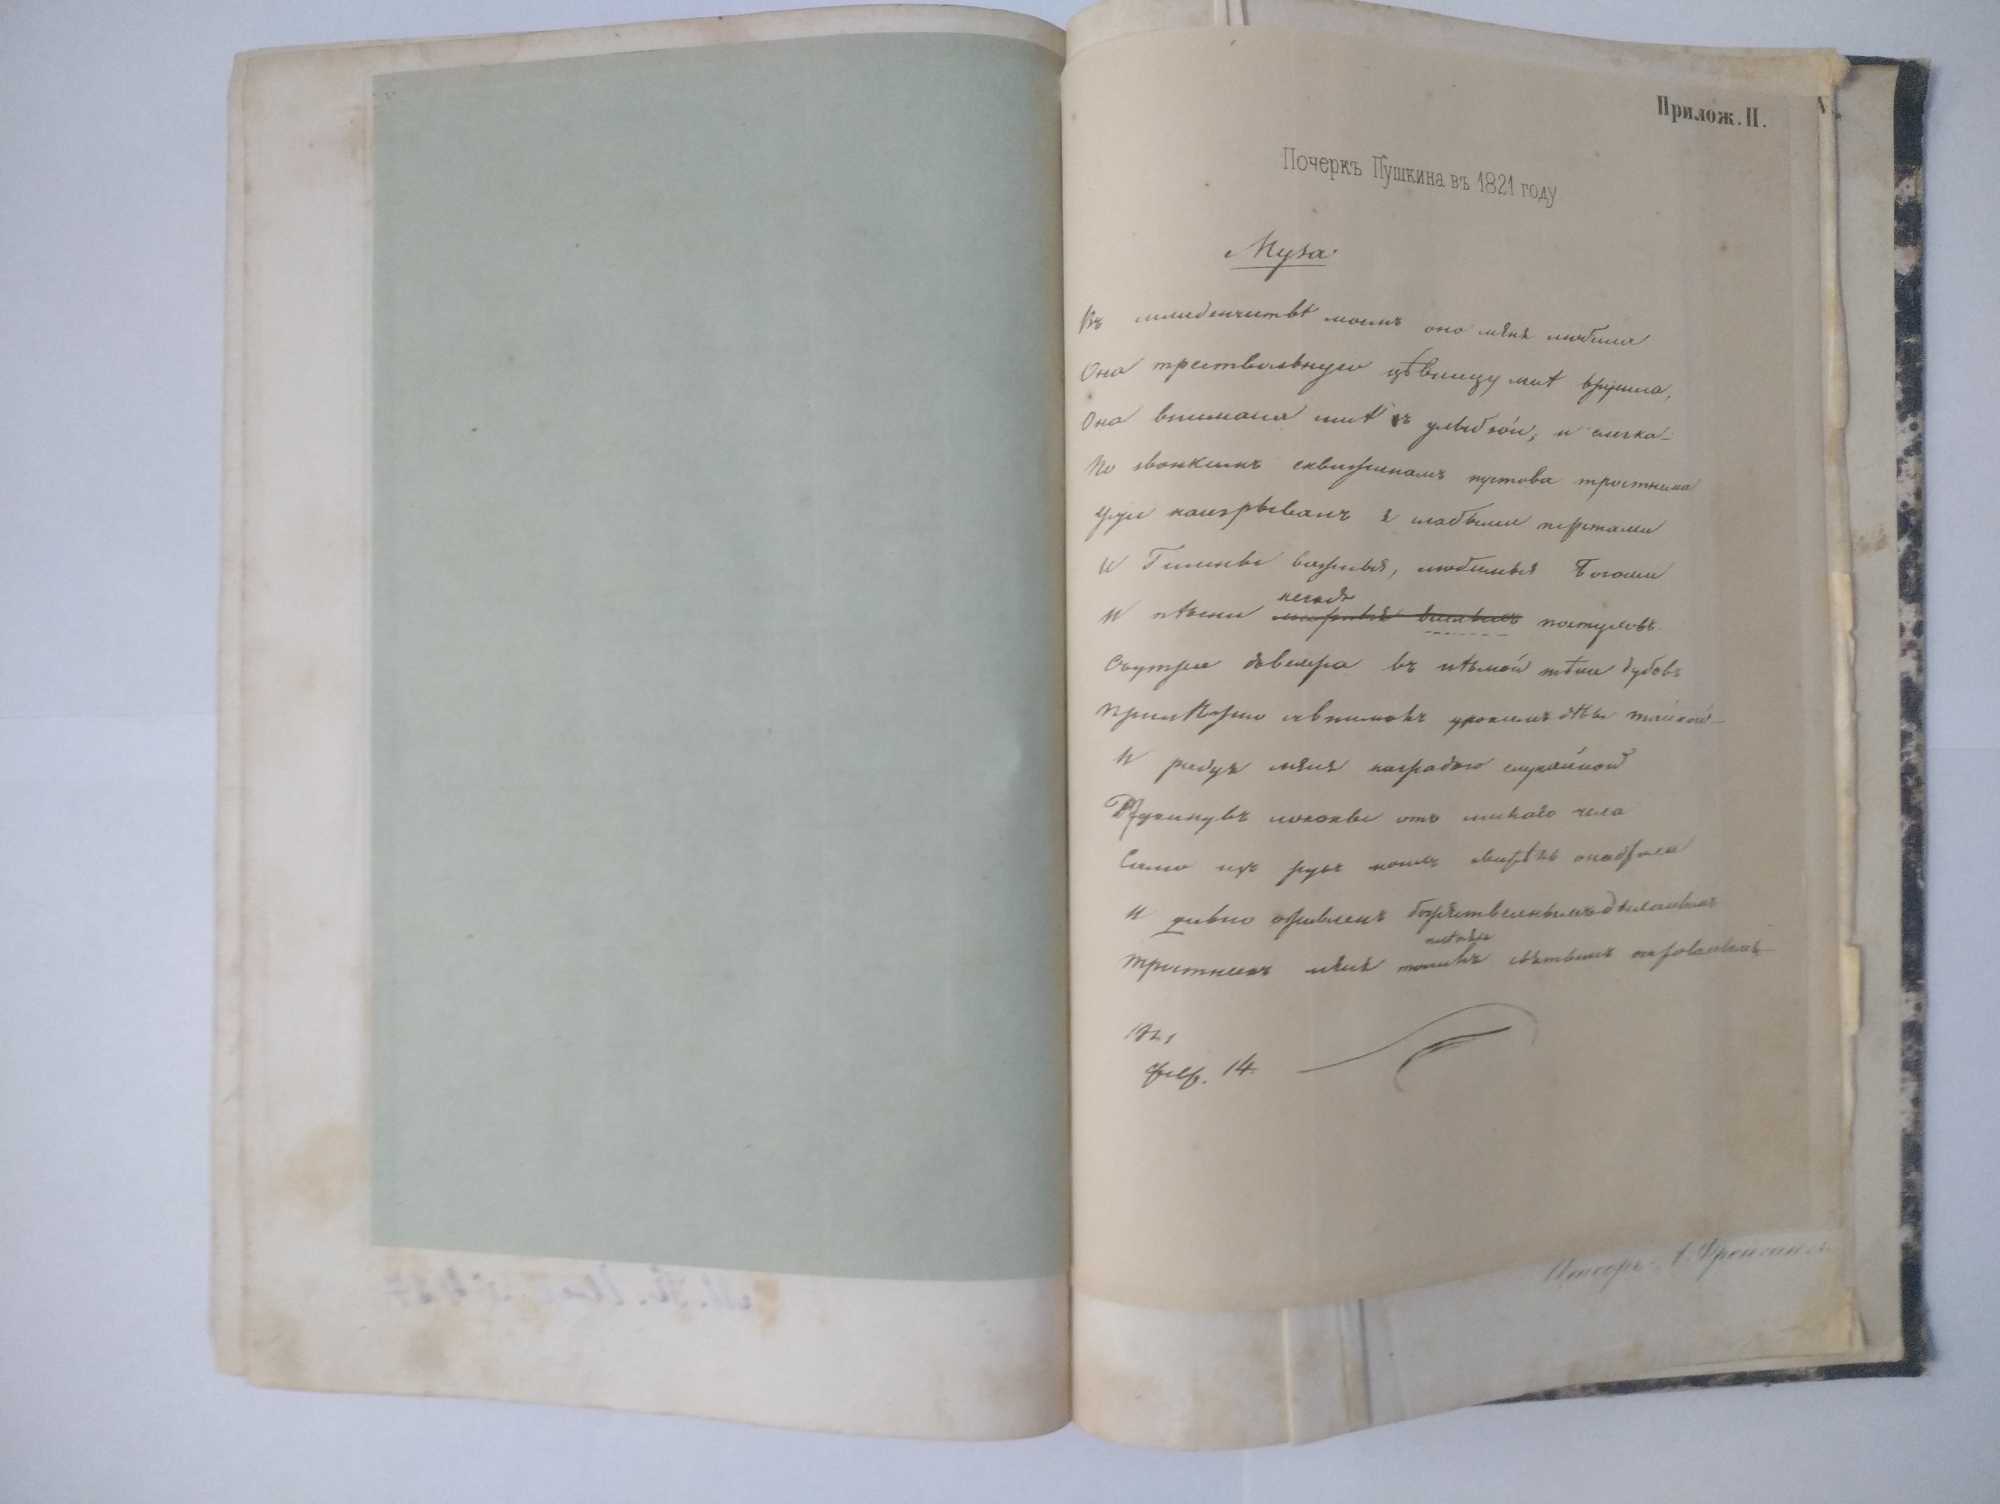 Прилож. II.
Почеркъ Пушкина въ 1821 году
Муза
Въ младенчествѣ моемъ она меня любила
Она трествольную цѣвницу мнѣ вручила,
Она внимала мнѣ съ улыбкой; и слегка
По звонкимъ скважинамъ пустова тростника
Уже наигрывалъ я слабыми перстами
И Гимны важныя, любимыя Богами
нежныя
И пѣсни пастуховъ.
Съутра довечера въ нѣмой тѣни дубовъ
Прилѣжно я внималъ урокамъ дѣвы тайной
И радуя меня наградою случайной
Откинувъ локоны отъ милаго чела
Сама изъ рукъ моихъ свирѣль она брала
И дивно оживленъ божественнымъ дыханьемъ
Тростникъ меня святымъ очарованьемъ
1821
Февр. 14.